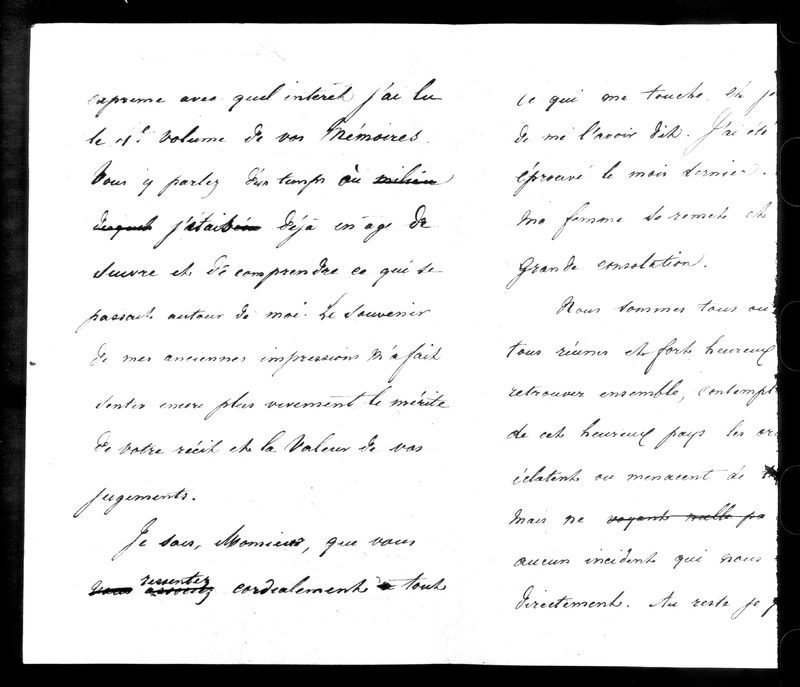 exprime avec quel intérêt j'ai lu
le 1er volume de vos Mémoires.
Vous y parlez d'un temps où milieu
duquel j'étais déjà en âge de
suivre et de comprendre ce qui se
passait autour de moi. Le souvenir
de mes anciennes impressions m'a fait
sentir encore plus vivement le mérite
de votre récit et la valeur de vos
jugements.
Je sais, Monsieur, que vous
ressentez
vous associez cordialement tout
ce qui me touche, et je
de me l'avoir dit. J'ai été
éprouvé le mois dernier.
Ma femme se remet et
grande consolation.
Nous sommes tous ou
tous réunis et fort heureux
retrouver ensemble, contempl
de cet heureux pays les ora
éclatent ou menacent de
Mais ne voyant nulle pa
aucun incident qui nous
directement. Au reste je